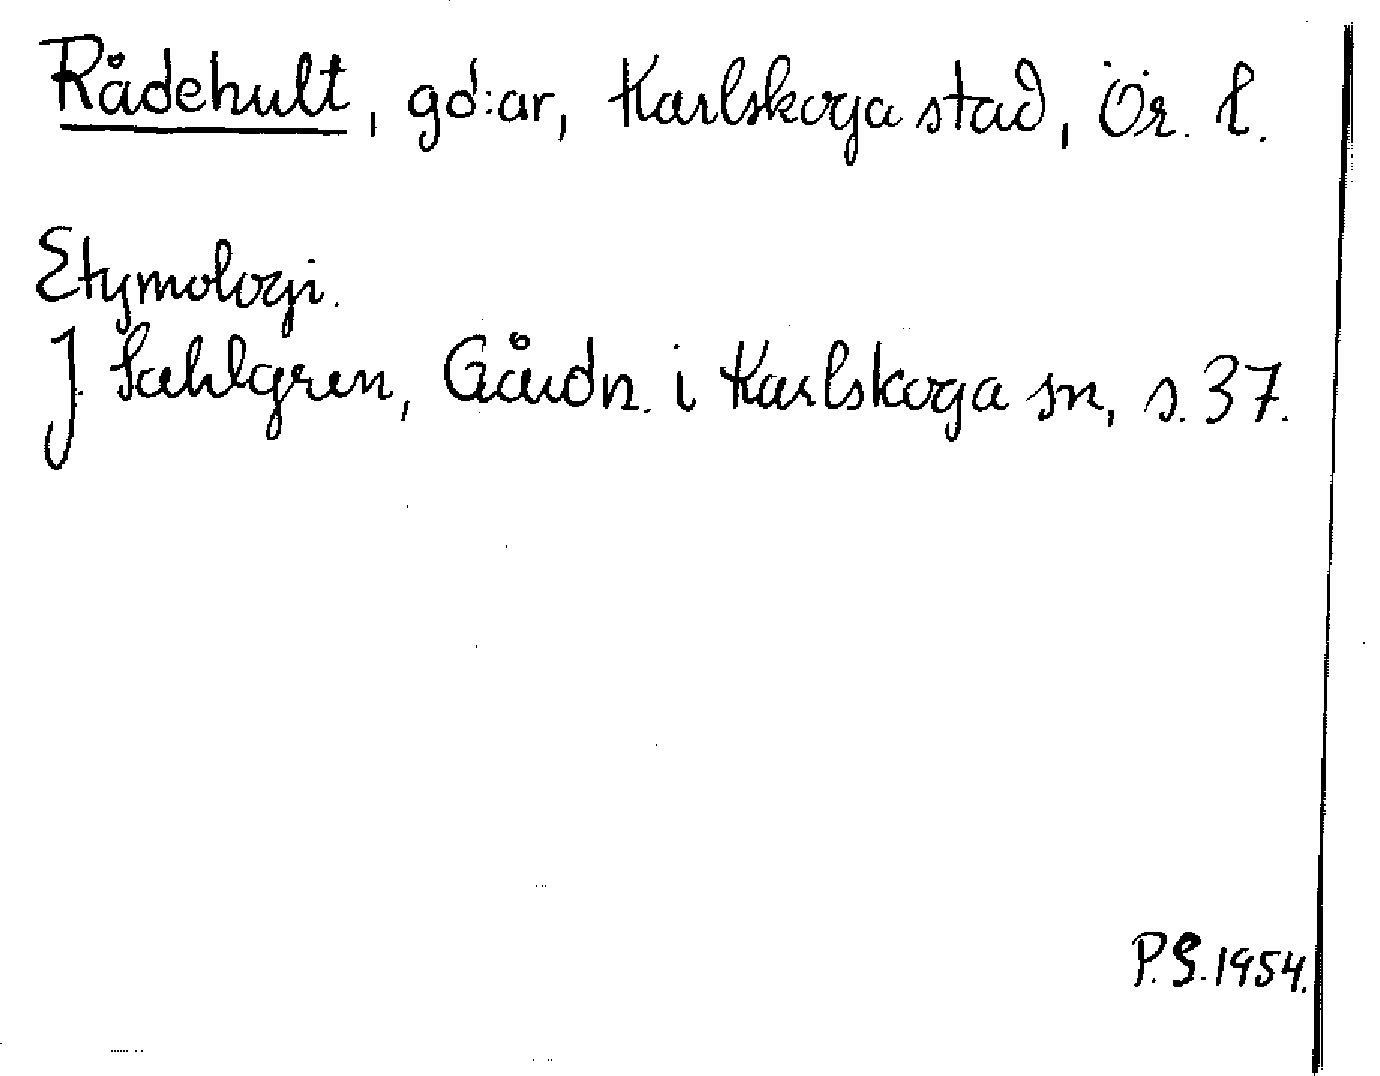 Rådehult, gd:ar, Karlskoga stad, Ör. l.
Etymologi.
J Sahlgren, Gårdn. i Karlskoga sn, s. 37.
P.S. 1954.